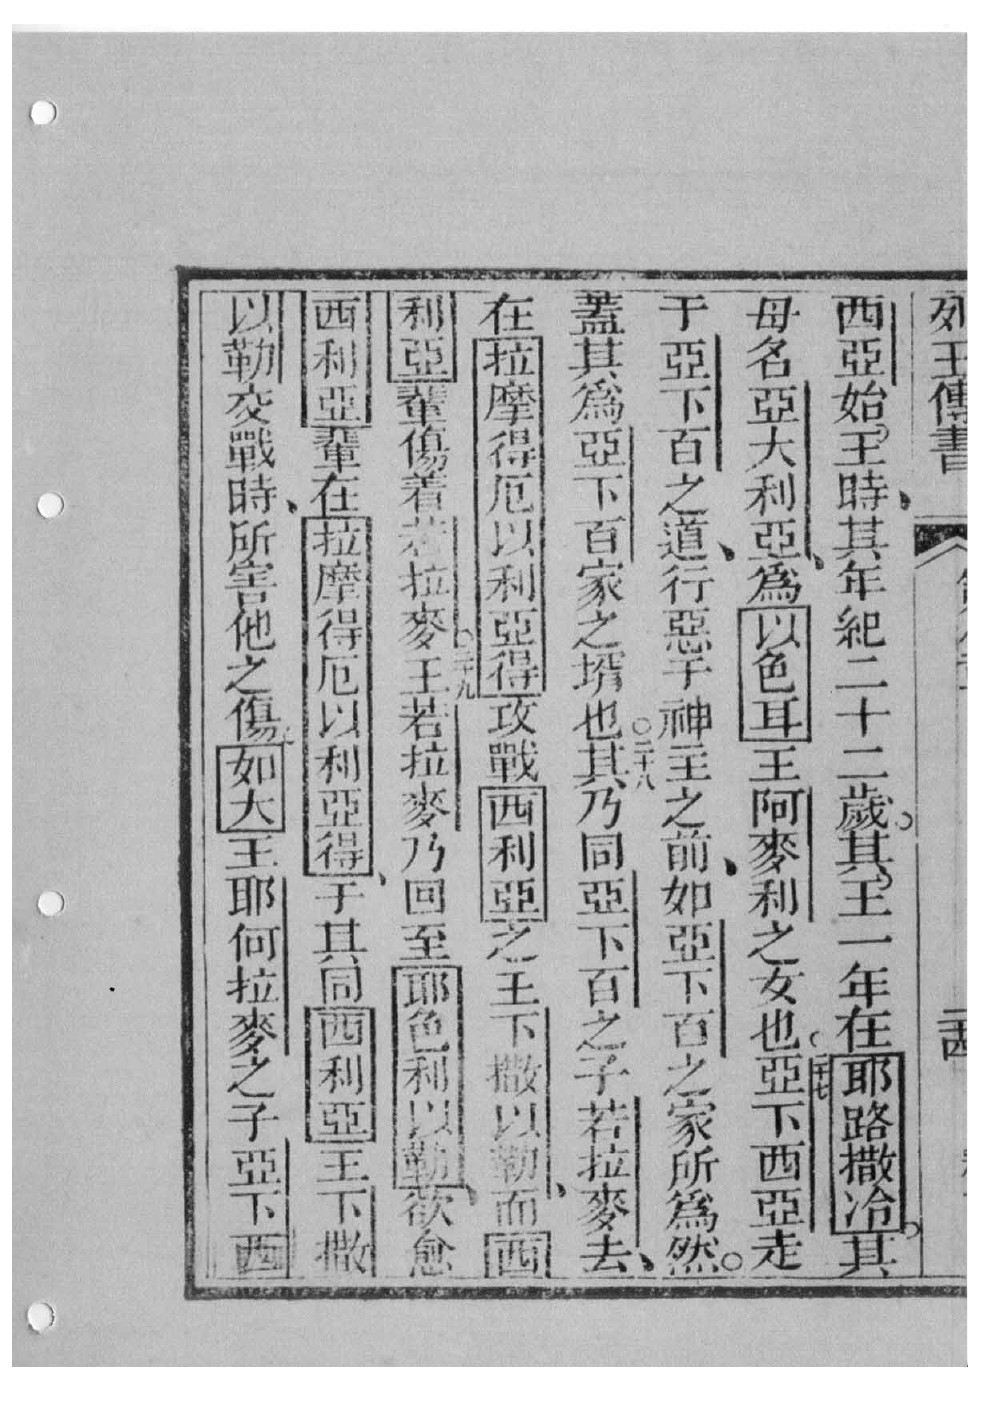 列王傳書 二十四
西亞始王時、其年紀二十二歲。其王一年在耶路撒冷。其
母名亞大利亞、爲以色耳王阿麥利之女也。二十七亞下西亞走
于亞下百之道、行惡于神主之前、如亞下百之家所爲然。
蓋其爲亞下百家之壻也。二十八其乃同亞下百之子若拉麥去、
在拉摩得厄以利亞得攻戰西利亞之王下撒以勒、而西
利亞輩傷着若拉麥。二十九王若拉麥乃回至耶色利以勒、欲愈
西利亞輩在拉摩得厄以利亞得、于其同西利亞王下撒
以勒交戰時、所害他之傷。如大王耶何拉麥之子亞下西